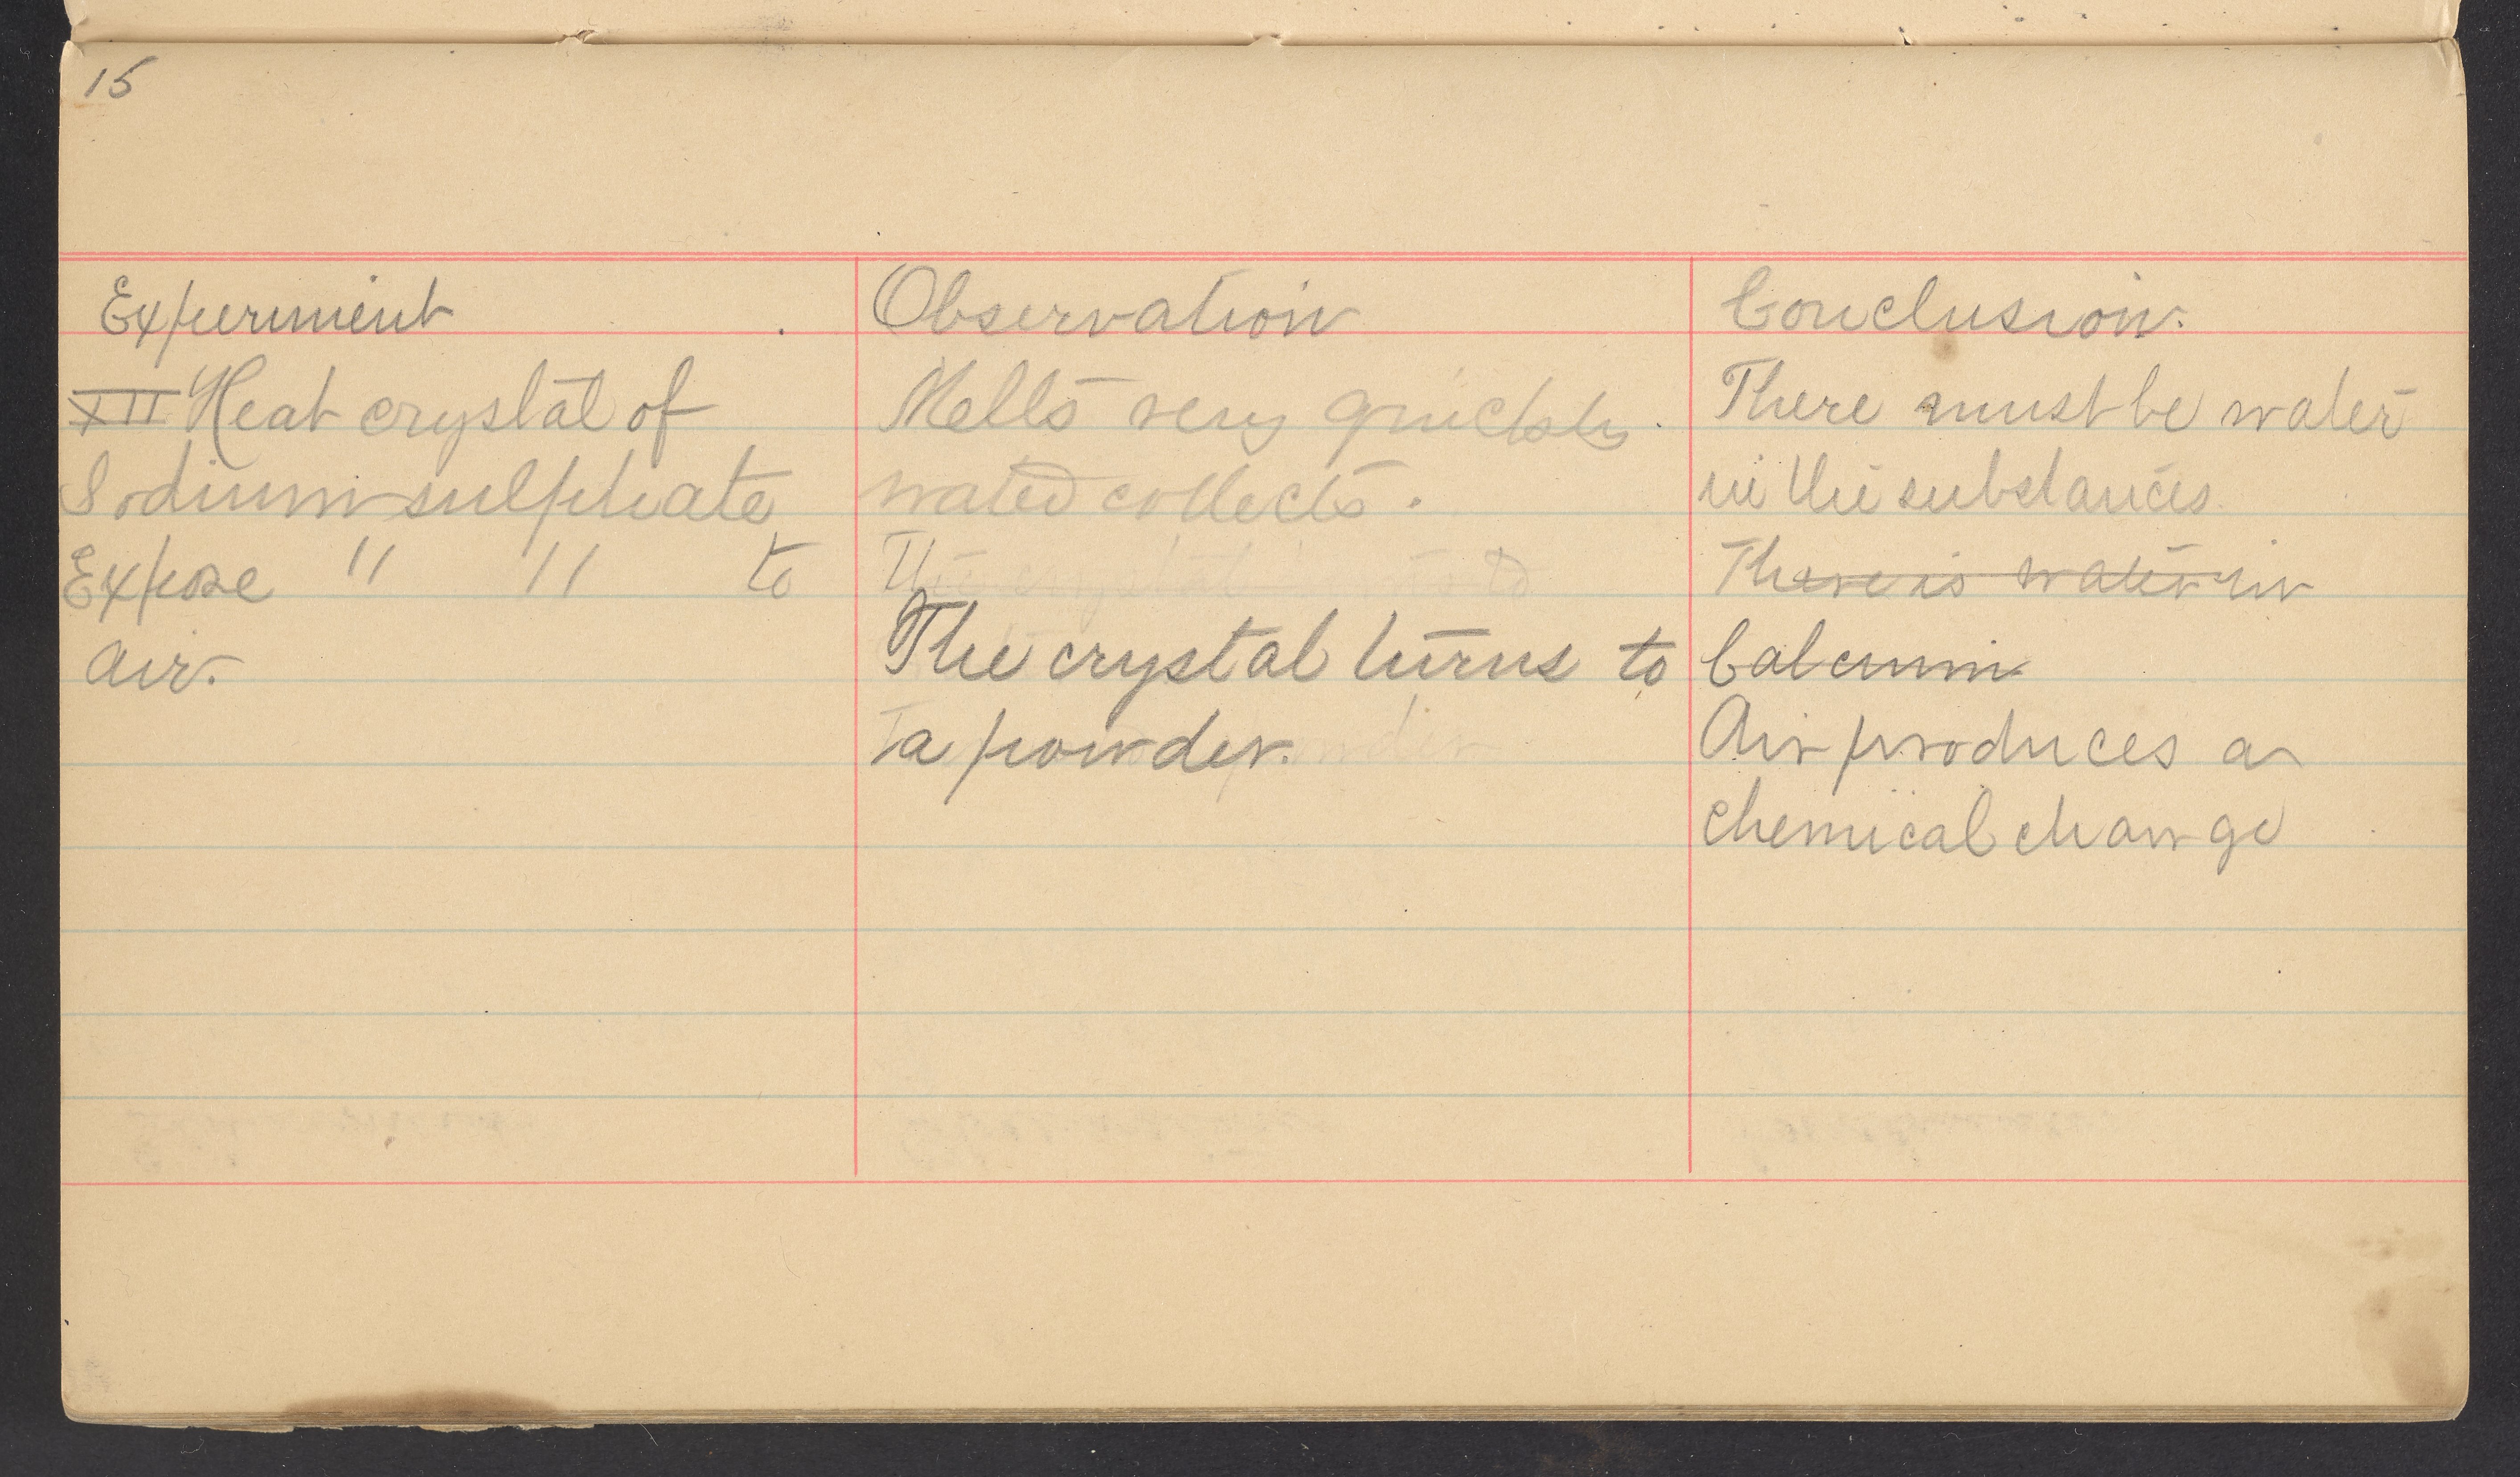 15
Experiment
XII Heat crystal of
Sodium sulphate
Expose " " to
air.
Observation
Melts very quickly.
water collects.
The crystal turns to
a powder.
Conclusion.
There must be water
in the substances
There is water in
Calcium
Air produces a
chemical change